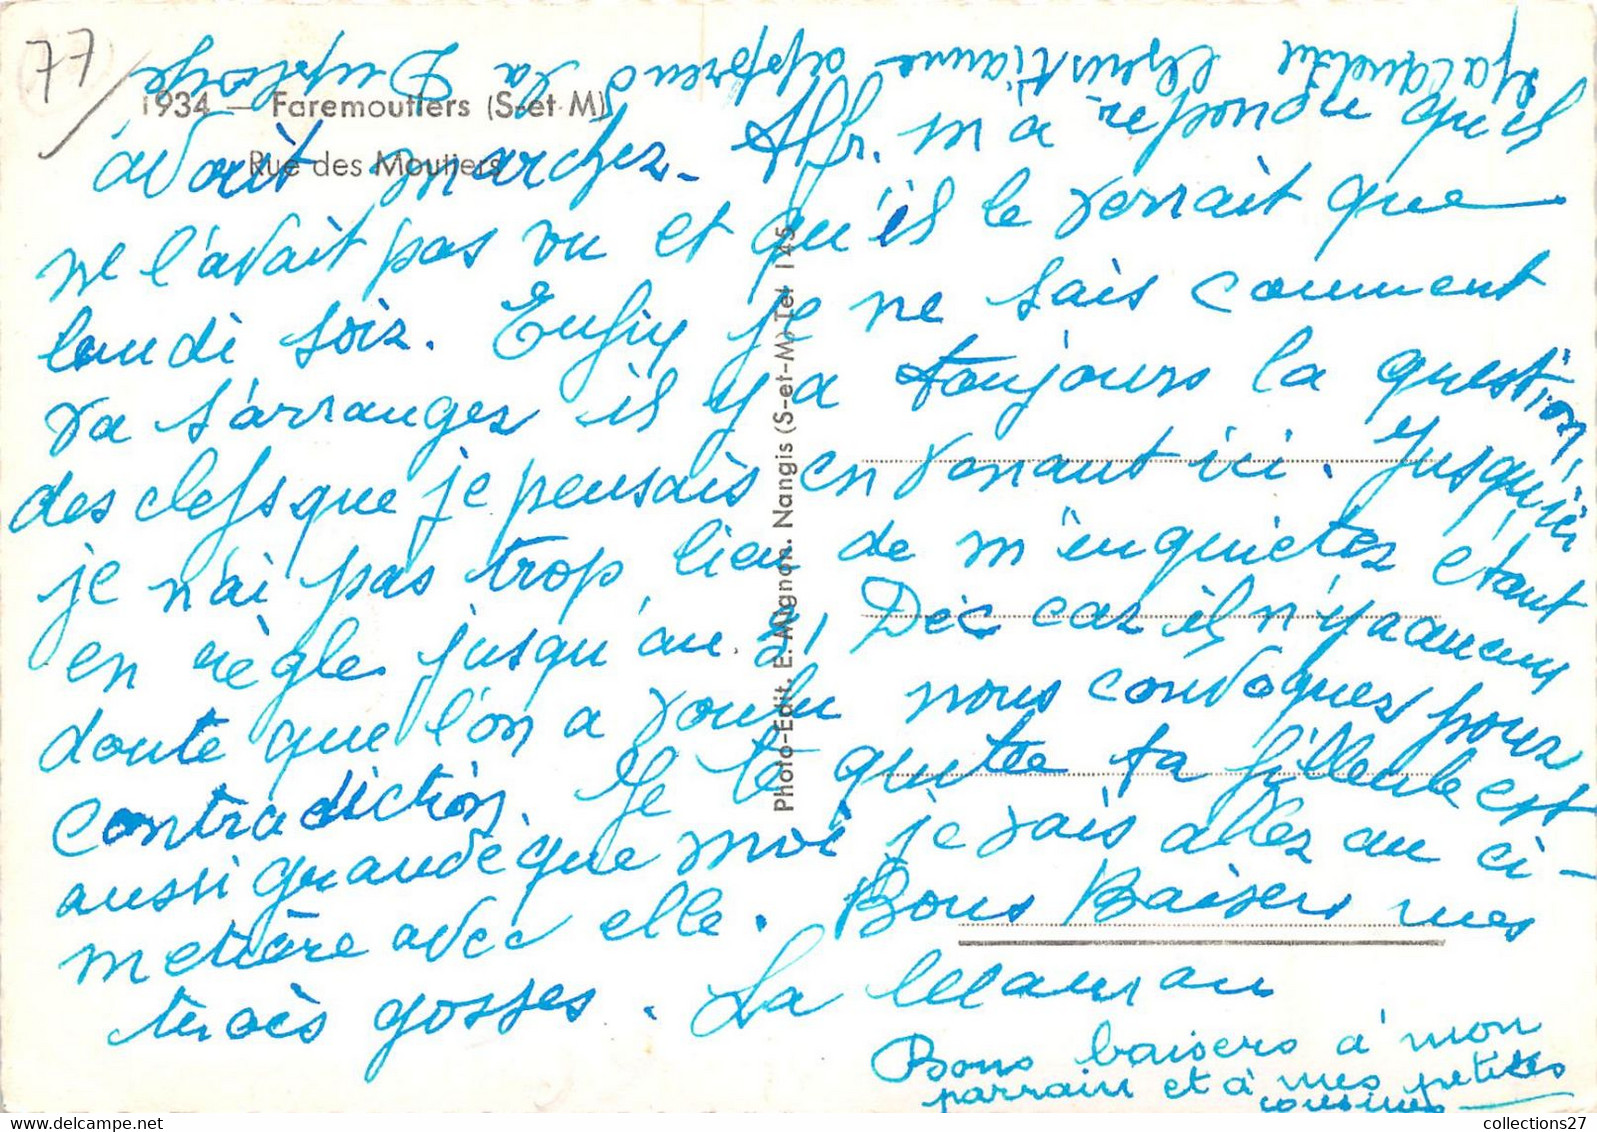 77
1934 — Faremoutiers (S-et M)
Rue des Moutiers
avait marchez. Alfr. m'a repondu qu'il
ne l'avait pas vu et qu'il le verrait que
lundi soir. Enfin je ne sais comment
va s'arranger il y a toujours la question
des clefs que je pensais en venant ici. Jusqu'ici
je n'ai pas trop lieu de m'inquieter étant
en règle jusqu'au 31 Déc car il n'y a aucun
doute que l'on a voulu nous convoquer pour
contradiction. Je te quitte ta filleule est
aussi grande que moi je vais aller au ci-
metière avec elle. Bons Baisers mes
trois gosses. La Maman
Bons baisers à mon
parrain et à mes petites
cousines
Jacqueline Christiane apprend la
Photo-Edit. E. Mignon. Nangis (S-et-M) Tel 145
collections27